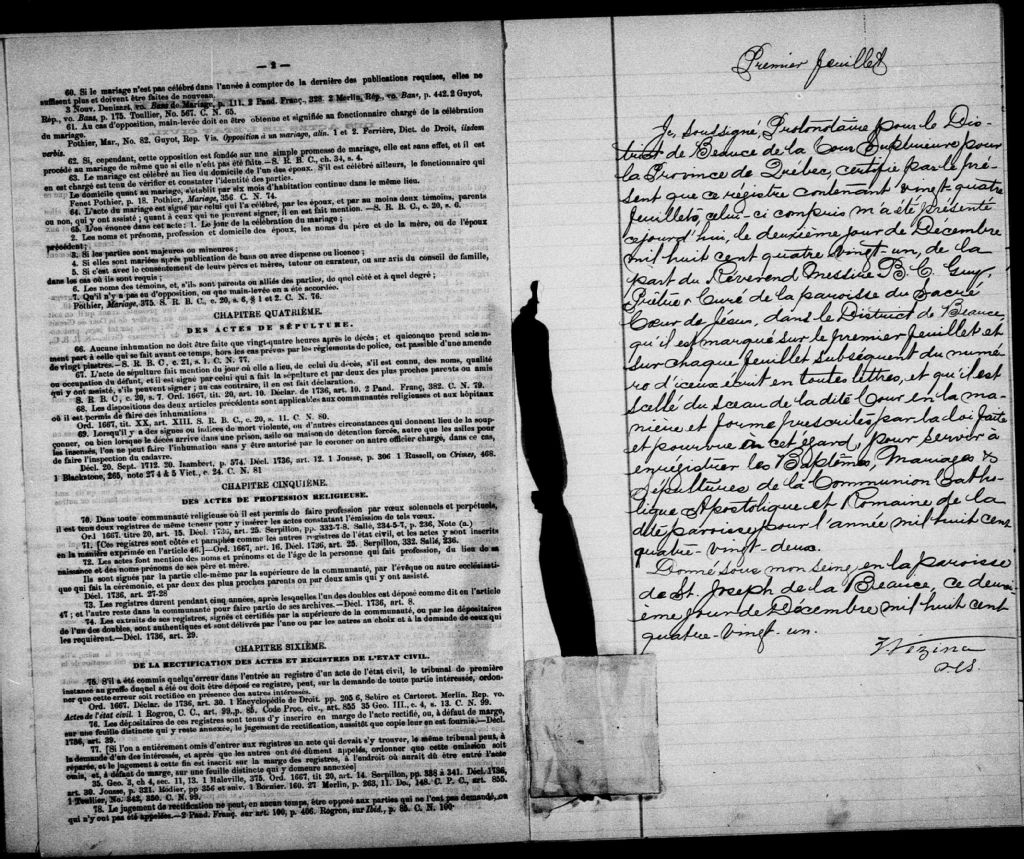 — 2 —
60. Si le mariage n'est pas célébré dans l'année à compter de la dernière des publications requises, elles ne
suffisent plus et doivent être faites de nouveau.
3 Nouv. Denizart, vo. Bans de Mariage, p. 111. 2 Pand. Franç., 328. 2 Merlin, Rép., vo. Bans, p. 442. 2 Guyot,
Rép., vo. Bans, p. 175. Toullier, No. 567. C. N. 65.
61. Au cas d'opposition, main-levée doit en être obtenue et signifiée au fonctionnaire chargé de la célébration
du mariage.
Pothier, Mar., No. 82. Guyot, Rep. Vis. Opposition à un mariage, alin. 1 et 2. Ferrière, Dict. de Droit, iisdem
verbis.
62. Si, cependant, cette opposition est fondée sur une simple promesse de mariage, elle est sans effet, et il est
procédé au mariage de même que si elle n'eût pas été faite.—S. R. B. C., ch. 34, s. 4.
63. Le mariage est célébré au lieu du domicile de l'un des époux. S'il est célébré ailleurs, le fonctionnaire qui
en est chargé est tenu de vérifier et constater l'identité des parties.
Le domicile quant au mariage, s'établit par six mois d'habitation continue dans le même lieu.
Fenet Pothier, p. 18. Pothier, Mariage, 356. C. N. 74.
64. L'acte du mariage est signé par celui qui l'a célébré, par les époux, et par au moins deux témoins, parents
ou non, qui y ont assisté ; quant à ceux qui ne peuvent signer, il en est fait mention. —S. R. B. C., c. 20, s. 6.
65. L'on énonce dans cet acte : 1. Le jour de la célébration du mariage ;
2. Les noms et prénoms, profession et domicile des époux, les noms du père et de la mère, ou de l'époux
précédent ;
3. Si les parties sont majeures ou mineures ;
4. Si elles sont mariées après publication de bans ou avec dispense ou licence ;
5. Si c'est avec le consentement de leurs pères et mères, tuteur ou curateur, ou sur avis du conseil de famille,
dans les cas où ils sont requis ;
6. Les noms des témoins, et, s'ils sont parents ou alliés des parties, de quel côté et à quel degré ;
7. Qu'il n'y a pas eu d'opposition, ou que main-levée en a été accordée.
Pothier, Mariage, 375. S. R. B. C., c. 20, s. 6, § 1 et 2. C. N. 76.
CHAPITRE QUATRIÈME.
DES ACTES DE SÉPULTURE.
66. Aucune inhumation ne doit être faite que vingt-quatre heures après le décès ; et quiconque prend sciem-
ment part à celle qui se fait avant ce temps, hors les cas prévus par les règlements de police, est passible d'une amende
de vingt piastres.—S. R. B. C., c. 21, s. 1. C. N. 77.
67. L'acte de sépulture fait mention du jour où elle a lieu, de celui du décès, s'il est connu, des noms, qualité
ou occupation du défunt, et il est signé par celui qui a fait la sépulture et par deux des plus proches parents ou amis
qui y ont assisté, s'ils peuvent signer ; au cas contraire, il en est fait déclaration.
S. R. B. C., c. 20, s. 7. Ord. 1667, tit. 20, art. 10. Déclar. de 1736, art. 10. 2 Pand. Franç, 382. C. N. 79.
68. Les dispositions des deux articles précédents sont applicables aux communautés religieuses et aux hôpitaux
où il est permis de faire des inhumations
Ord. 1667, tit. XX, art. XIII. S. R. B. C., c. 20, s. 11. C. N. 80.
69. Lorsqu'il y a des signes ou indices de mort violente, ou d'autres circonstances qui donnent lieu de la soup-
çonner, ou bien lorsque le décès arrive dans une prison, asile ou maison de détention forcée, autre que les asiles pour
les insensés, l'on ne peut faire l'inhumation sans y être autorisé par le coroner ou autre officier chargé, dans ce cas,
de faire l'inspection du cadavre.
Décl. 20. Sept. 1712. 20. Isambert, p. 574. Décl. 1736, art. 12. 1 Jousse, p. 306 1 Russell, on Crimes, 468.
1 Blackstone, 265, note 27 4 & 5 Vict., c. 24. C. N. 81
CHAPITRE CINQUIÈME.
DES ACTES DE PROFESSION RELIGIEUSE.
70. Dans toute communauté religieuse où il est permis de faire profession par vœux solennels et perpétuels,
il est tenu deux registres de même teneur pour y insérer les actes constatant l'émission de tels vœux.
Ord 1667, titre 20, art. 15. Décl. 1736, art. 25. Serpillon, pp. 332-7-8. Sallé, 234-5-7, p. 236, Note (a.)
71. [Ces registres sont côtés et paraphés comme les autres registres de l'état civil, et les actes y sont inscrits
en la manière exprimée en l'article 46.]—Ord. 1667, art. 16. Décl. 1736, art. 25. Serpillon, 332. Sallé, 236.
72. Les actes font mention des noms et prénoms et de l'âge de la personne qui fait profession, du lieu de sa
naissance et des noms et prénoms de ses père et mère.
Ils sont signés par la partie elle-même par la supérieure de la communauté, par l'évêque ou autre ecclésiasti-
que qui fait la cérémonie, et par deux des plus proches parents ou par deux amis qui y ont assisté.
Décl. 1736, art. 27-28
73. Les registres durent pendant cinq années, après lesquelles l'un des doubles est déposé comme dit en l'article
47 ; et l'autre reste dans la communauté pour faire partie de ses archives.—Décl. 1736, art. 8.
74. Les extraits de ces registres, signés et certifiés par la supérieure de la communauté, ou par les dépositaires
de l'un des doubles, sont authentiques et sont délivrés par l'une ou par les autres au choix et à la demande de ceux qui
les requièrent.—Décl. 1736, art. 29.
CHAPITRE SIXIÈME.
DE LA RECTIFICATION DES ACTES ET REGISTRES DE L'ETAT CIVIL.
75. S'il a été commis quelqu'erreur dans l'entrée au registre d'un acte de l'état civil, le tribunal de première
instance au greffe duquel a été ou doit être déposé ce registre, peut, sur la demande de toute partie intéressée, ordon-
ner que cette erreur soit rectifiée en présence des autres intéressés.
Ord. 1667. Déclar. de 1736, art. 30. 1 Encyclopédie de Droit. pp. 205 6, Sebire et Carteret. Merlin. Rep. vo.
Actes de l'état civil. 1 Rogron, C. C., art. 99., p. 85. Code Proc. civ., art. 855 35 Geo. III., c. 4, s. 13. C. N. 99.
76. Les dépositaires de ces registres sont tenus d'y inscrire en marge de l'acte rectifié, ou, à défaut de marge,
sur une feuille distincte qui y reste annexée, le jugement de rectification, aussitôt que copie leur en est fournie.—Décl.
1736, art. 39.
77. [Si l'on a entièrement omis d'entrer aux registres un acte qui devait s'y trouver, le même tribunal peut, à
la demande d'un des intéressés, et après que les autres ont été dûment appelés, ordonner que cette omission soit
réparée, et le jugement à cette fin est inscrit sur la marge des registres, à l'endroit où aurait dû être entré l'acte
omis, et, à défaut de marge, sur une feuille distincte qui y demeure annexée]
35. Geo. 3, ch 4, sec. 11, 13. 1 Maleville, 375. Ord. 1667, tit 20, art. 14. Serpillon, pp. 338 à 341. Décl. 1736,
art. 30. Jousse, p. 321. Rodier, pp 356 et suiv. 1 Bornier. 160. 27 Merlin, p. 263, 11. Do., 148. C. P. C., art. 855.
1 Toullier, No. 342, 350. C. N. 99.
78. Le jugement de rectification ne peut, en aucun temps, être opposé aux parties qui ne l'ont pas demandé, ou
qui n'y ont pas été appelées.—2 Pand. Franç. sur art. 100, p. 406. Rogron, sur Ibid., p. 85. C. N. 100
Premier feuillet
Je, soussigné, Protonotaire pour le Dis-
trict de Beauce de la Cour Supérieure pour
la Province de Québec, certifie par le pré-
sent que ce régistre contenant vingt-quatre
feuillets, celui-ci compris m'a été présenté
cejourd'hui, le deuxième jour de Décembre
mil huit cent quatre vingt-un, de la
part du Révérend Messire B. C. Guy,
Prêtre Curé de la paroisse du Sacré
Cœur de Jésus, dans le District de Beauce,
qu'il est marqué sur le premier feuillet et
sur chaque feuillet subséquent du numé-
ro d'iceux écrit en toutes lettres, et qu'il est
scellé du sceau de la dite Cour en la ma-
nière et forme prescrites par la loi faite
et pourvue en cet égard, pour servir à
enregistrer les Baptêmes, Mariages &
Sépultures de la Communion Catho-
lique Apostolique et Romaine de la
dite paroisse, pour l'année mil huit cent
quatre-vingt-deux.
Donné sous mon seing, en la paroisse
de St. Joseph de la Beauce, ce deuxi-
ème jour de Décembre mil huit cent
quatre-vingt-un.
Vézina
P.C.S.